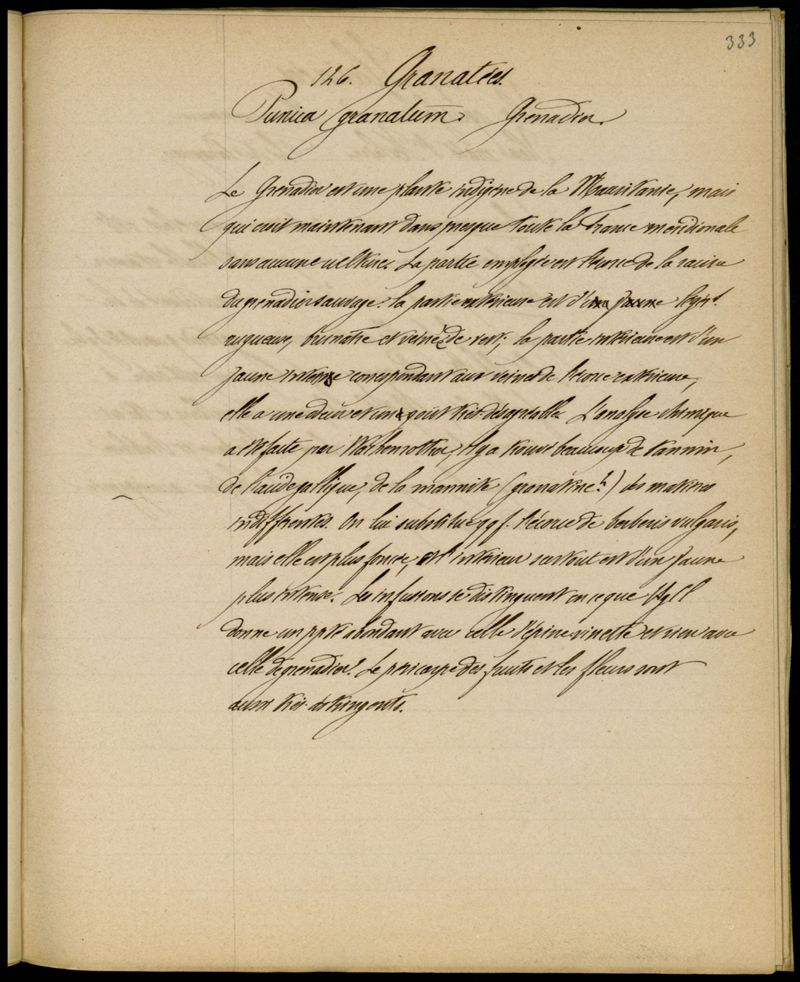 333
126. Granatées.
Punica granatum. Grenadier.
Le Grenadier est une plante indigène de la Mauritanie, mais
qui croit maintenant dans presque toute la France méridionale
sans aucune culture. La partie employée est l'écorce de la racine
du grenadier sauvage. la partie extérieure est d'un jaune légèrt.
rugueuse, brunâtre et veinée de vert; la partie intérieure est d'un
jaune intense correspondant aux veines de l'écorce extérieure,
elle a une odeur et un goût très désagréable. L'analyse chimique
a été faite par il y a trouvé beaucoup de tannin,
de l'acide gallique, de la mannite (granatine) des matières
indifférentes. On lui substitue qqf. l'écorce de berberis vulgaris,
mais elle est plus foncée, et l'intérieur surtout est d'un jaune
plus intense. Les infusions se distinguent en ce que
donne un ppté abondant avec celle d'épine-vinette et rien avec
celle de grenadier. Le péricarpe des fruits et les fleurs sont
aussi très astringents.